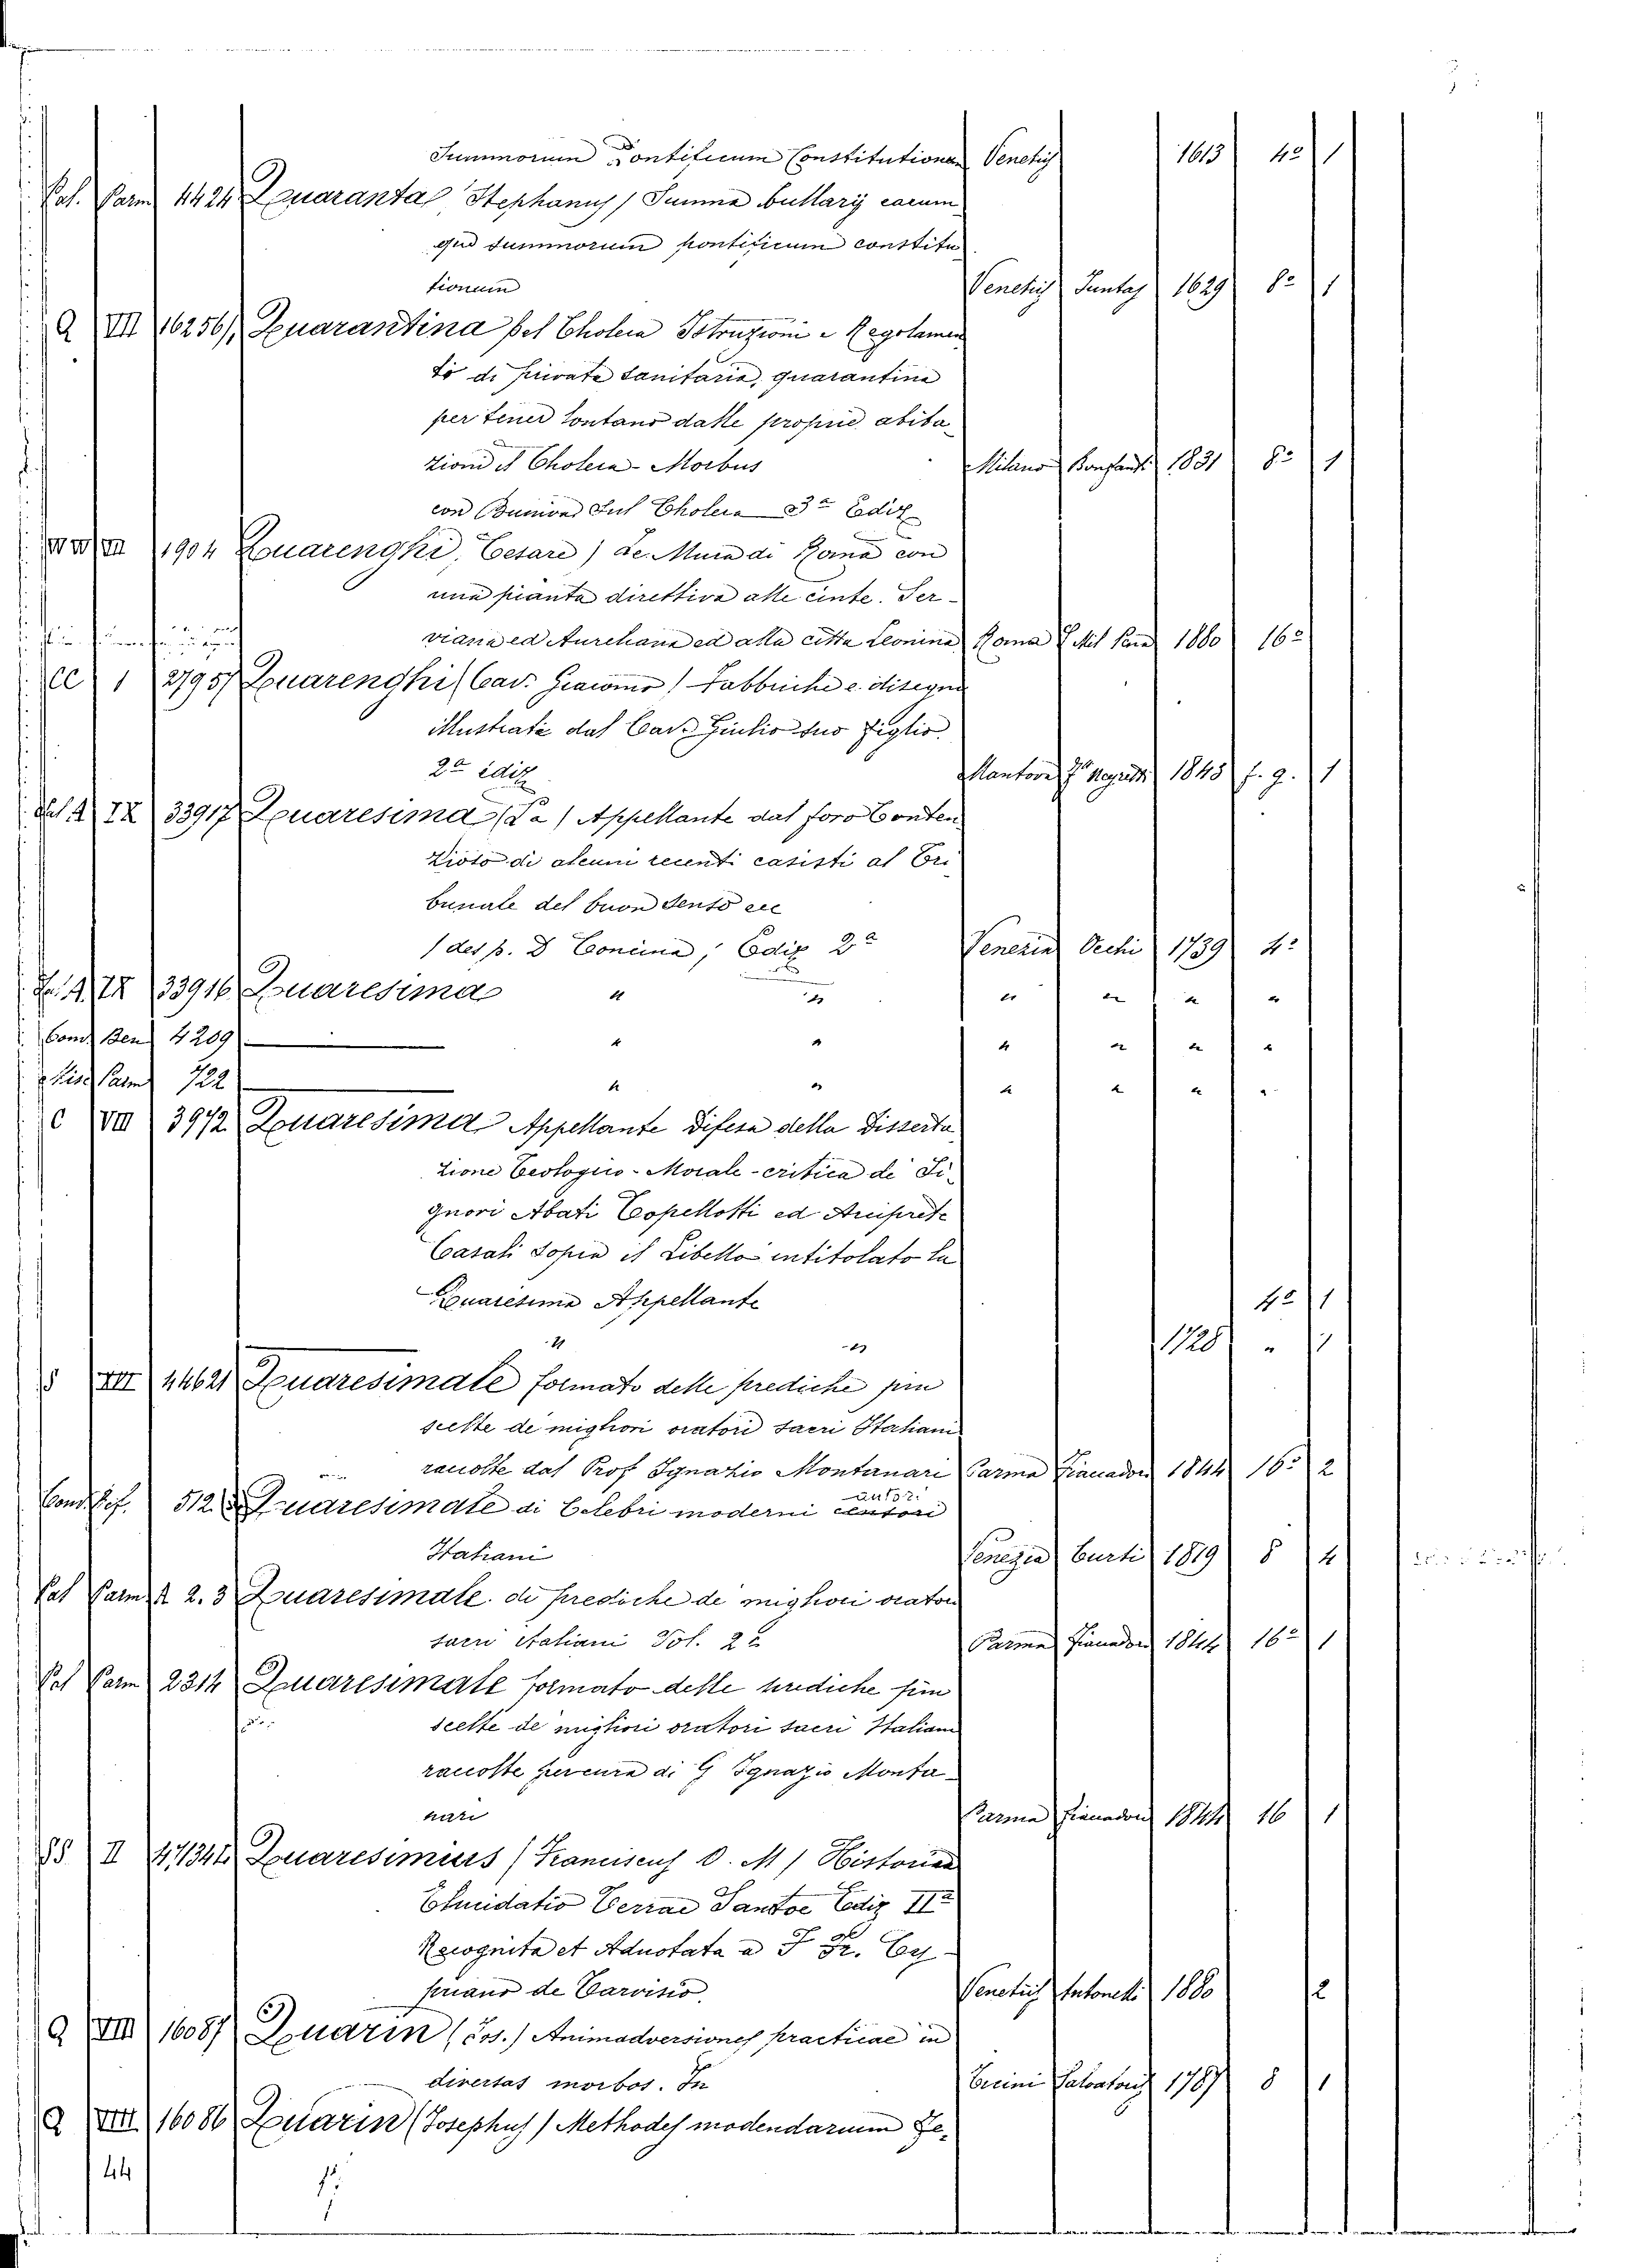 Summorum Pontificum Constitutionum Venetijs 1613 4º 1
Pal. Parm 4424 Quaranta, Stephanus / Summa bullarij earum
que summorum pontificum constitu
tionum Venetijs Juntas 1629 8º 1
Q VIII 16256 Quarantina pel Cholera Istruzioni e Regolamen
ti di private sanitarie, quarantine
per tener lontano dalle proprie abita
zioni il Cholera-Morbus Milano Bonfanti 1831 8º 1
con Bunioni sul Cholera 3ª Ediz
1904 Quarenghi, Cesare) Le Mura di Roma con
una pianta direttiva alle cinte. Ser-
viana ed Aureliana ed alla citta Leonina Roma 1880 16º
CC 1 2795 Quarenghi (Cav. Giacomo) Fabbriche e disegni
illustrate dal Cav. Giulio suo figlio
2ª ediz Mantova Negretti 1845 f. g. 1
IX 33917 Quaresima (La) Appellante dal foro Conten
zioso di alcuni recenti casisti al Tri
bunale del buon senso ecc
(del p. D Concina, Ediz 2ª Venezia Occhi 1739 4º
IX 33916 Quaresima " " " " " "
Cond Ben 4209 " " " " " "
Parm 722 " " " " " "
C VIII 3972 Quaresima Appellante difesa della disserta
zione Teologico-Morale-critica de Si-
gnori Abati Copellotti ed Arciprete
Casali sopra il Libello intitolato la
Quaresima Appellante 4º 1
" " 1728 " 1
§ XII 44621 Quaresimale formato delle prediche piu
scelte de migliori oratori sacri Italiani
raccolte dal Prof Ignazio Montanari Parma Fiaccadori 1844 16º 2
autori
512 Quaresimale di Celebri moderni
Italiani Venezia Curti 1819 8 4
Pal Parm 2.3 Quaresimale di prediche de migliori oratori
sacri Italiani Vol. 2º Parma Fiaccadori 1844 16º 1
Pal Parm 2314 Quaresimale formato delle prediche piu
scelte de migliori oratori sacri Italiani
raccolte per cura di G Ignazio Monta-
nari Parma Fiaccadori 1844 16 1
§§ II 47134 Quaresimius (Franciscus O. M) Historica
Elucidatio Terrae Sanctae Ediz IIª
Recognita et Adnotata a Fr. Cy-
priano de Tarvisio Venetiis Antonelli 1880 2
Q VIII 16087 Quarin (Jos.) Animadversiones practicae in
diversas morbos. In Ticini Salvatoris 1787 8 1
Q VIII 16086 Quarin (Josephus) Methodes medendarum Fe-
44